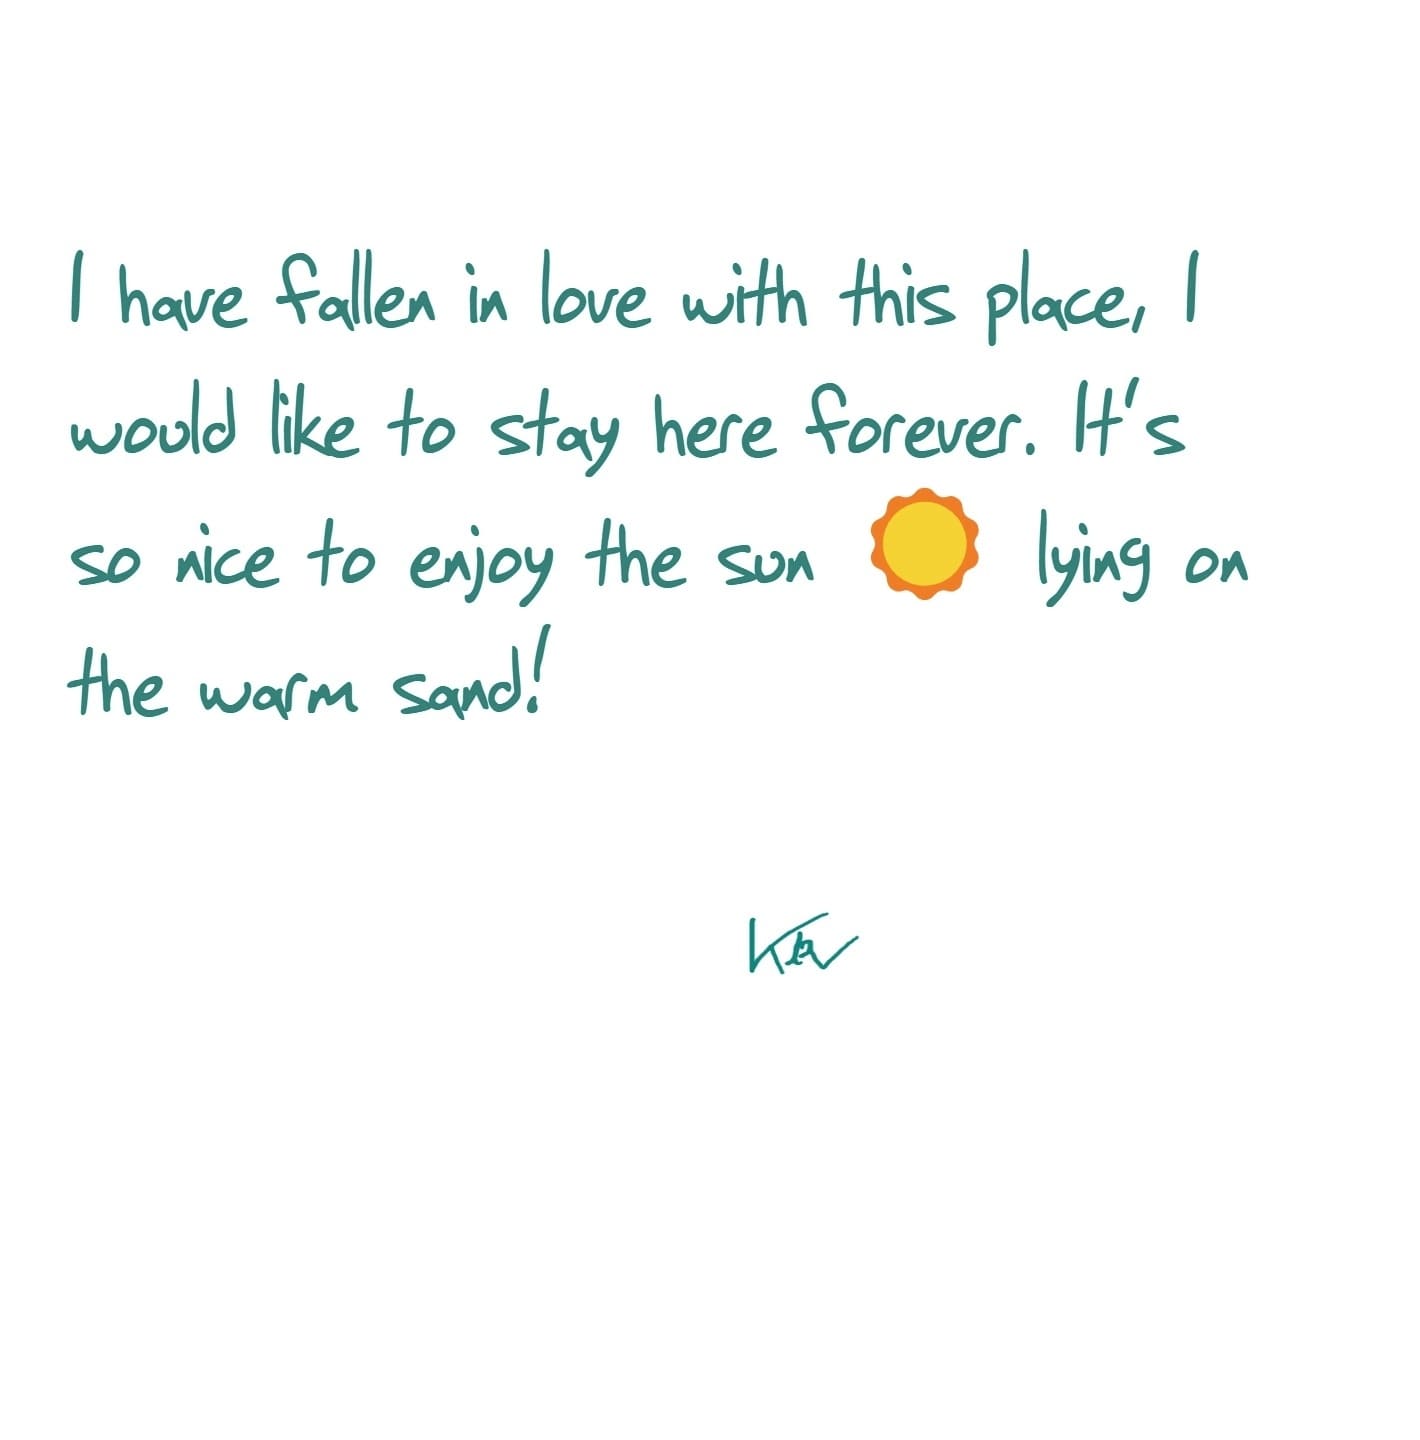 I have fallen in love with this place, I
would like to stay here forever. It's
so nice to enjoy the sun lying on
the warm sand!